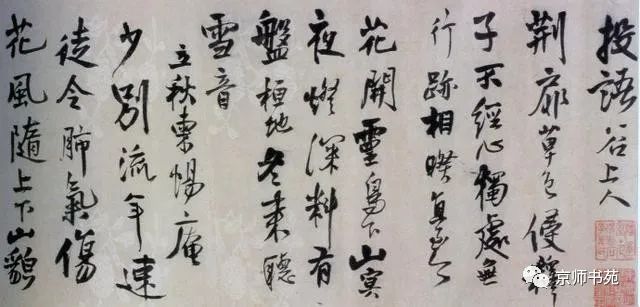 投語谷上人
荆扉草色侵
子不經心獨處無
行跡相暌直至今
花開靈鳥下山冥
夜燈深料有
盤桓地冬來聽
雪音
立秋柬惕庵
少别流年速
徒令肺氣傷
花風隨上下山貌
京师书苑